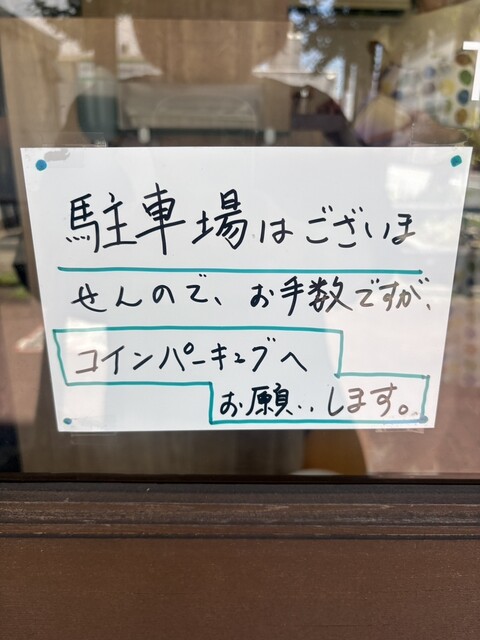 駐車場はございま
せんので、お手数ですが、
コインパーキングへ
お願いします。